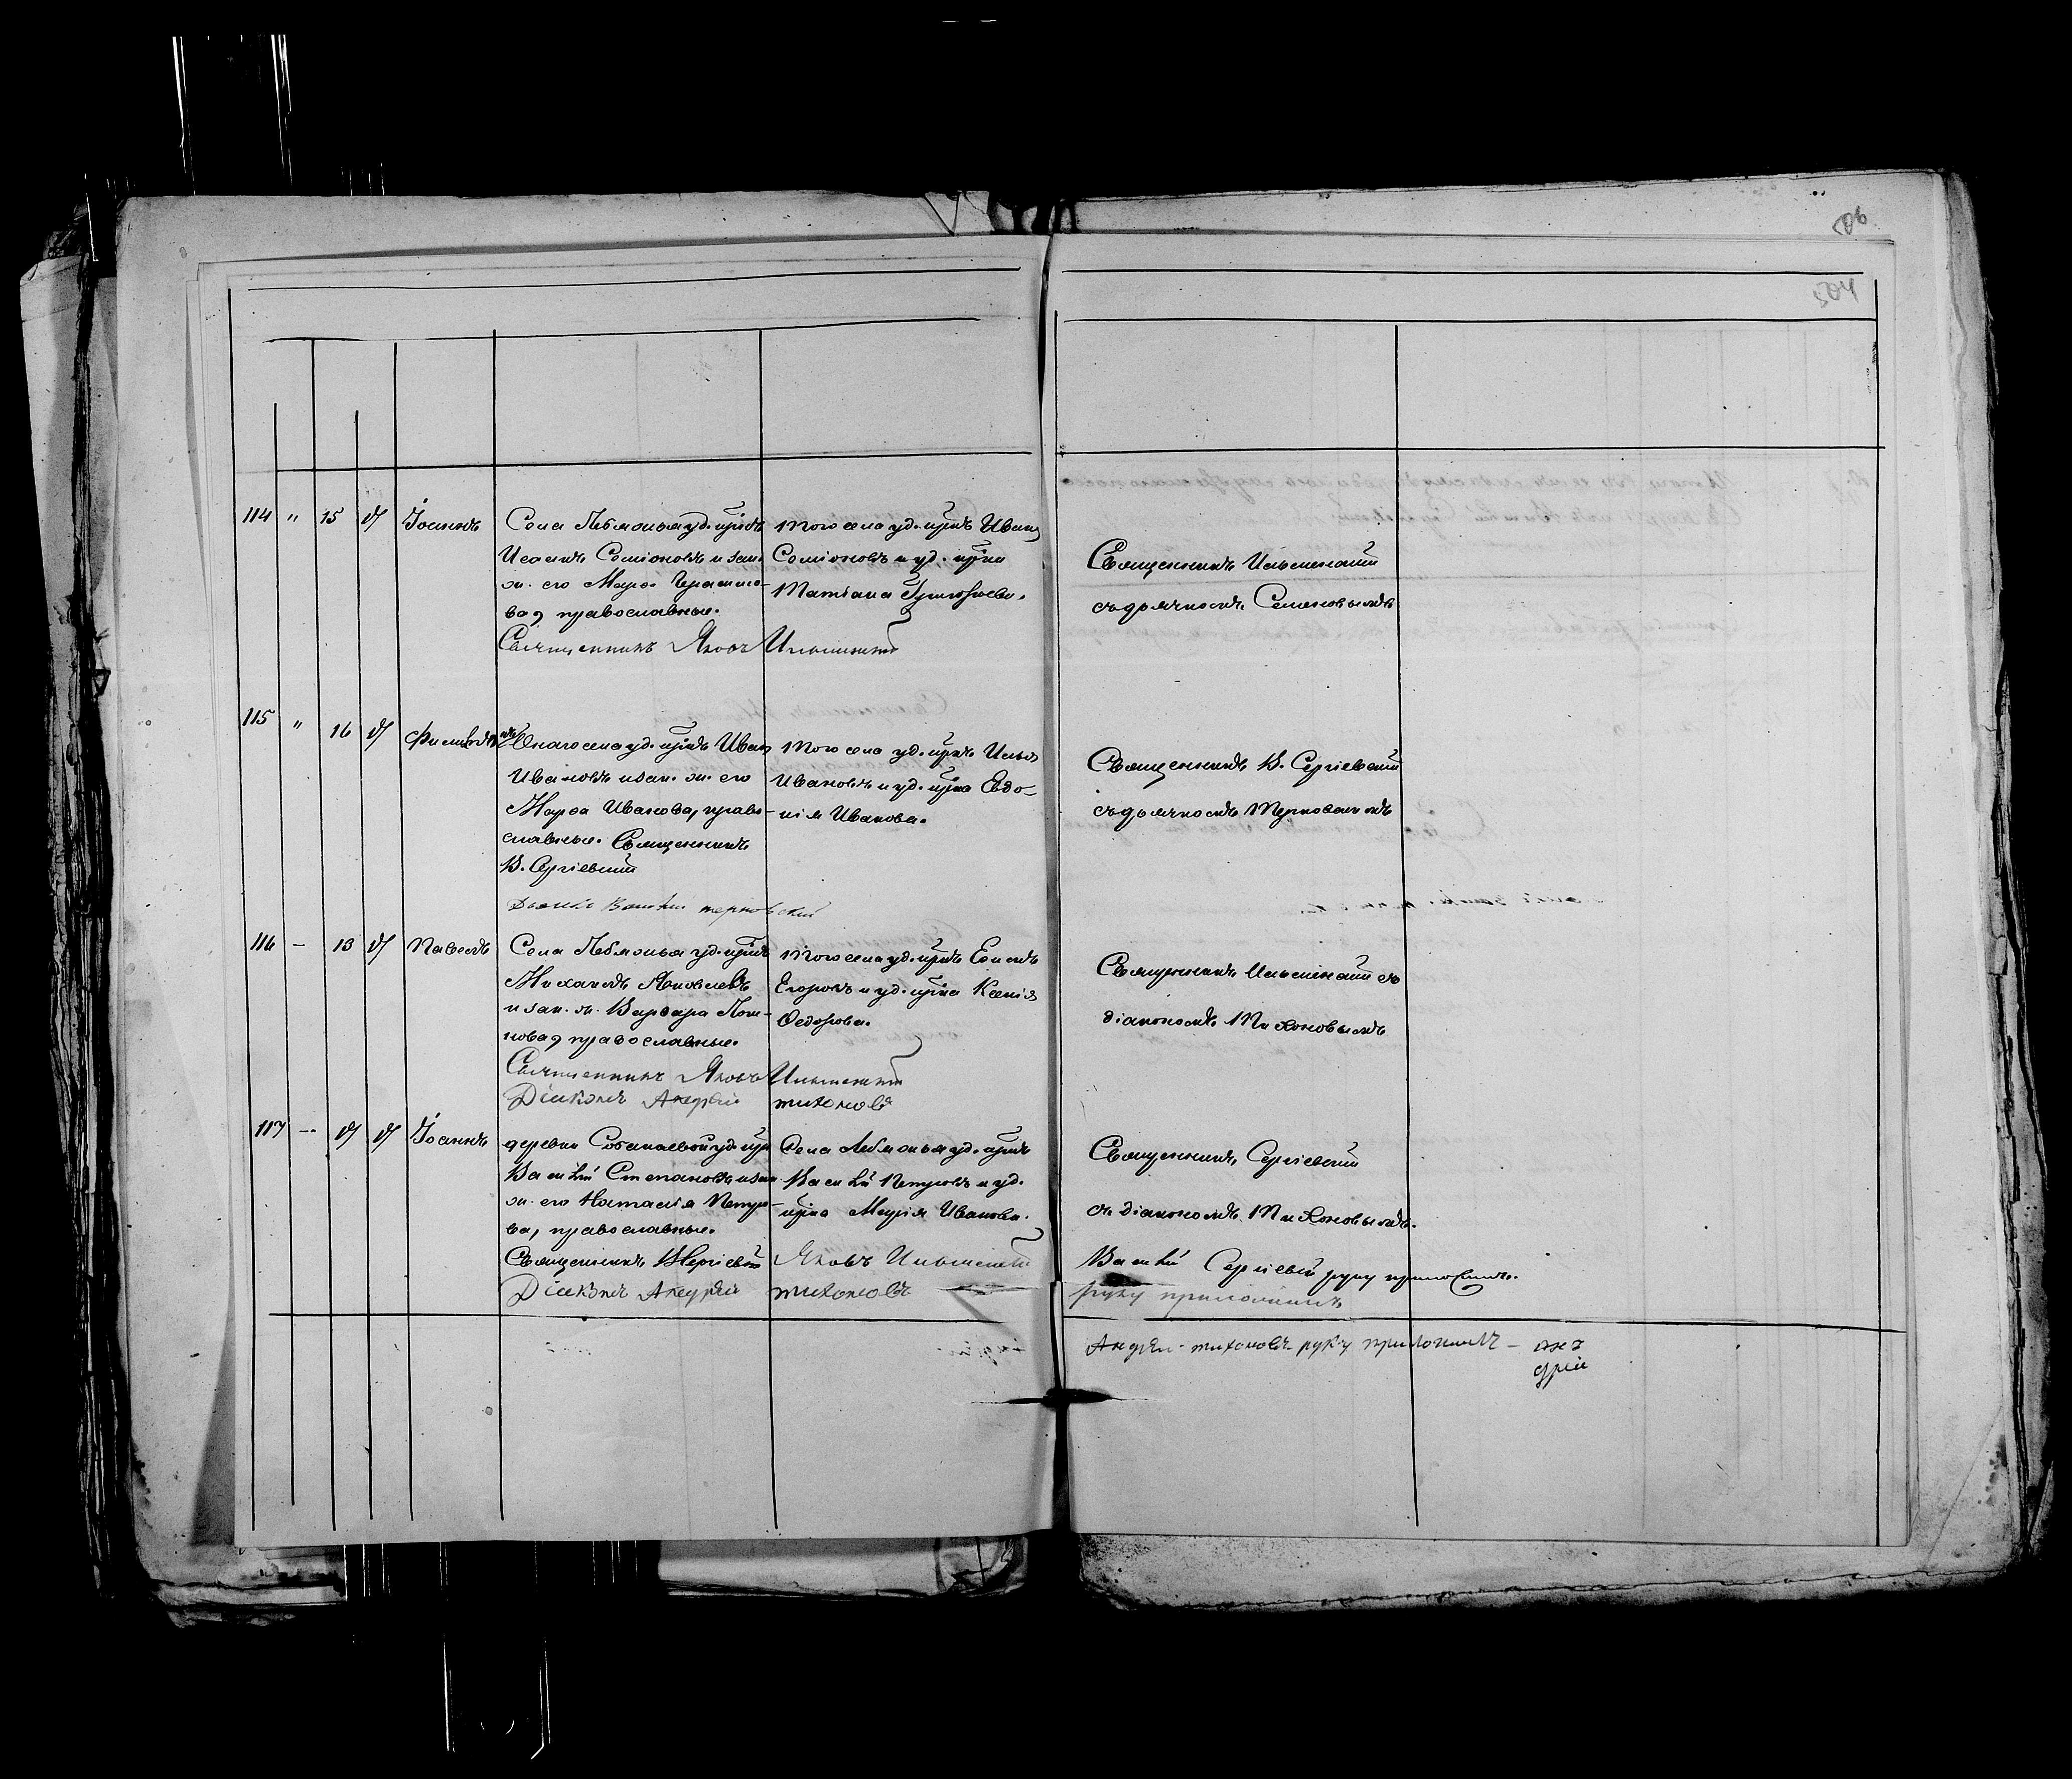 506
504
114 " 15 17 Іоаннъ
Села Лебяжья уд. крстн.
Исаакъ Семіоновъ и зак.
ж. его Марѳа Герасимо-
ва, православные.
Священникъ Яковъ Ильминскій
Того села уд. крнъ Иванъ
Семіоновъ и уд. крка
Татіана Григорьева.
Священникъ Ильминскій
съ дьячкомъ Семеновымъ
115 " 16 17
Онаго села уд. крнъ Иванъ
Ивановъ и зак. ж. его
Марѳа Иванова, право-
славные. Священникъ
В. Сергіевскій
Дьячекъ Василій Терновскій
Того села уд. крнъ Илья
Ивановъ и уд. крка Евдо-
кія Иванова.
Священникъ В. Сергіевскій
съ дьячкомъ Терновскимъ
116 – 13 17 Павелъ
Села Лебяжья уд. крнъ
Михаилъ Яковлевъ
и зак. ж. Варвара
нова, православные.
Священникъ Яковъ Ильминскій
Діаконъ Андрей Тихоновъ
Того села уд. крнъ
Егоровъ и уд. крка Ксенія
Ѳедорова.
Священникъ Ильминскій съ
діакономъ Тихоновымъ
117 – 17 17 Іоаннъ
деревни Собакаевой уд. кр.
Василій Степановъ и зак.
ж. его Наталія Петро-
ва, православные.
Священникъ В. Сергіевскій
Діаконъ Андрей Тихоновъ
Села Лебяжья уд. крнъ
Василій Петровъ и уд.
крка Марія Иванова.
Яковъ Ильминскій
Священникъ Сергіевскій
съ діакономъ Тихоновымъ.
Василій Сергіевскій руку приложилъ.
руку приложилъ
Андрей Тихоновъ руку приложилъ – Ан
дрей